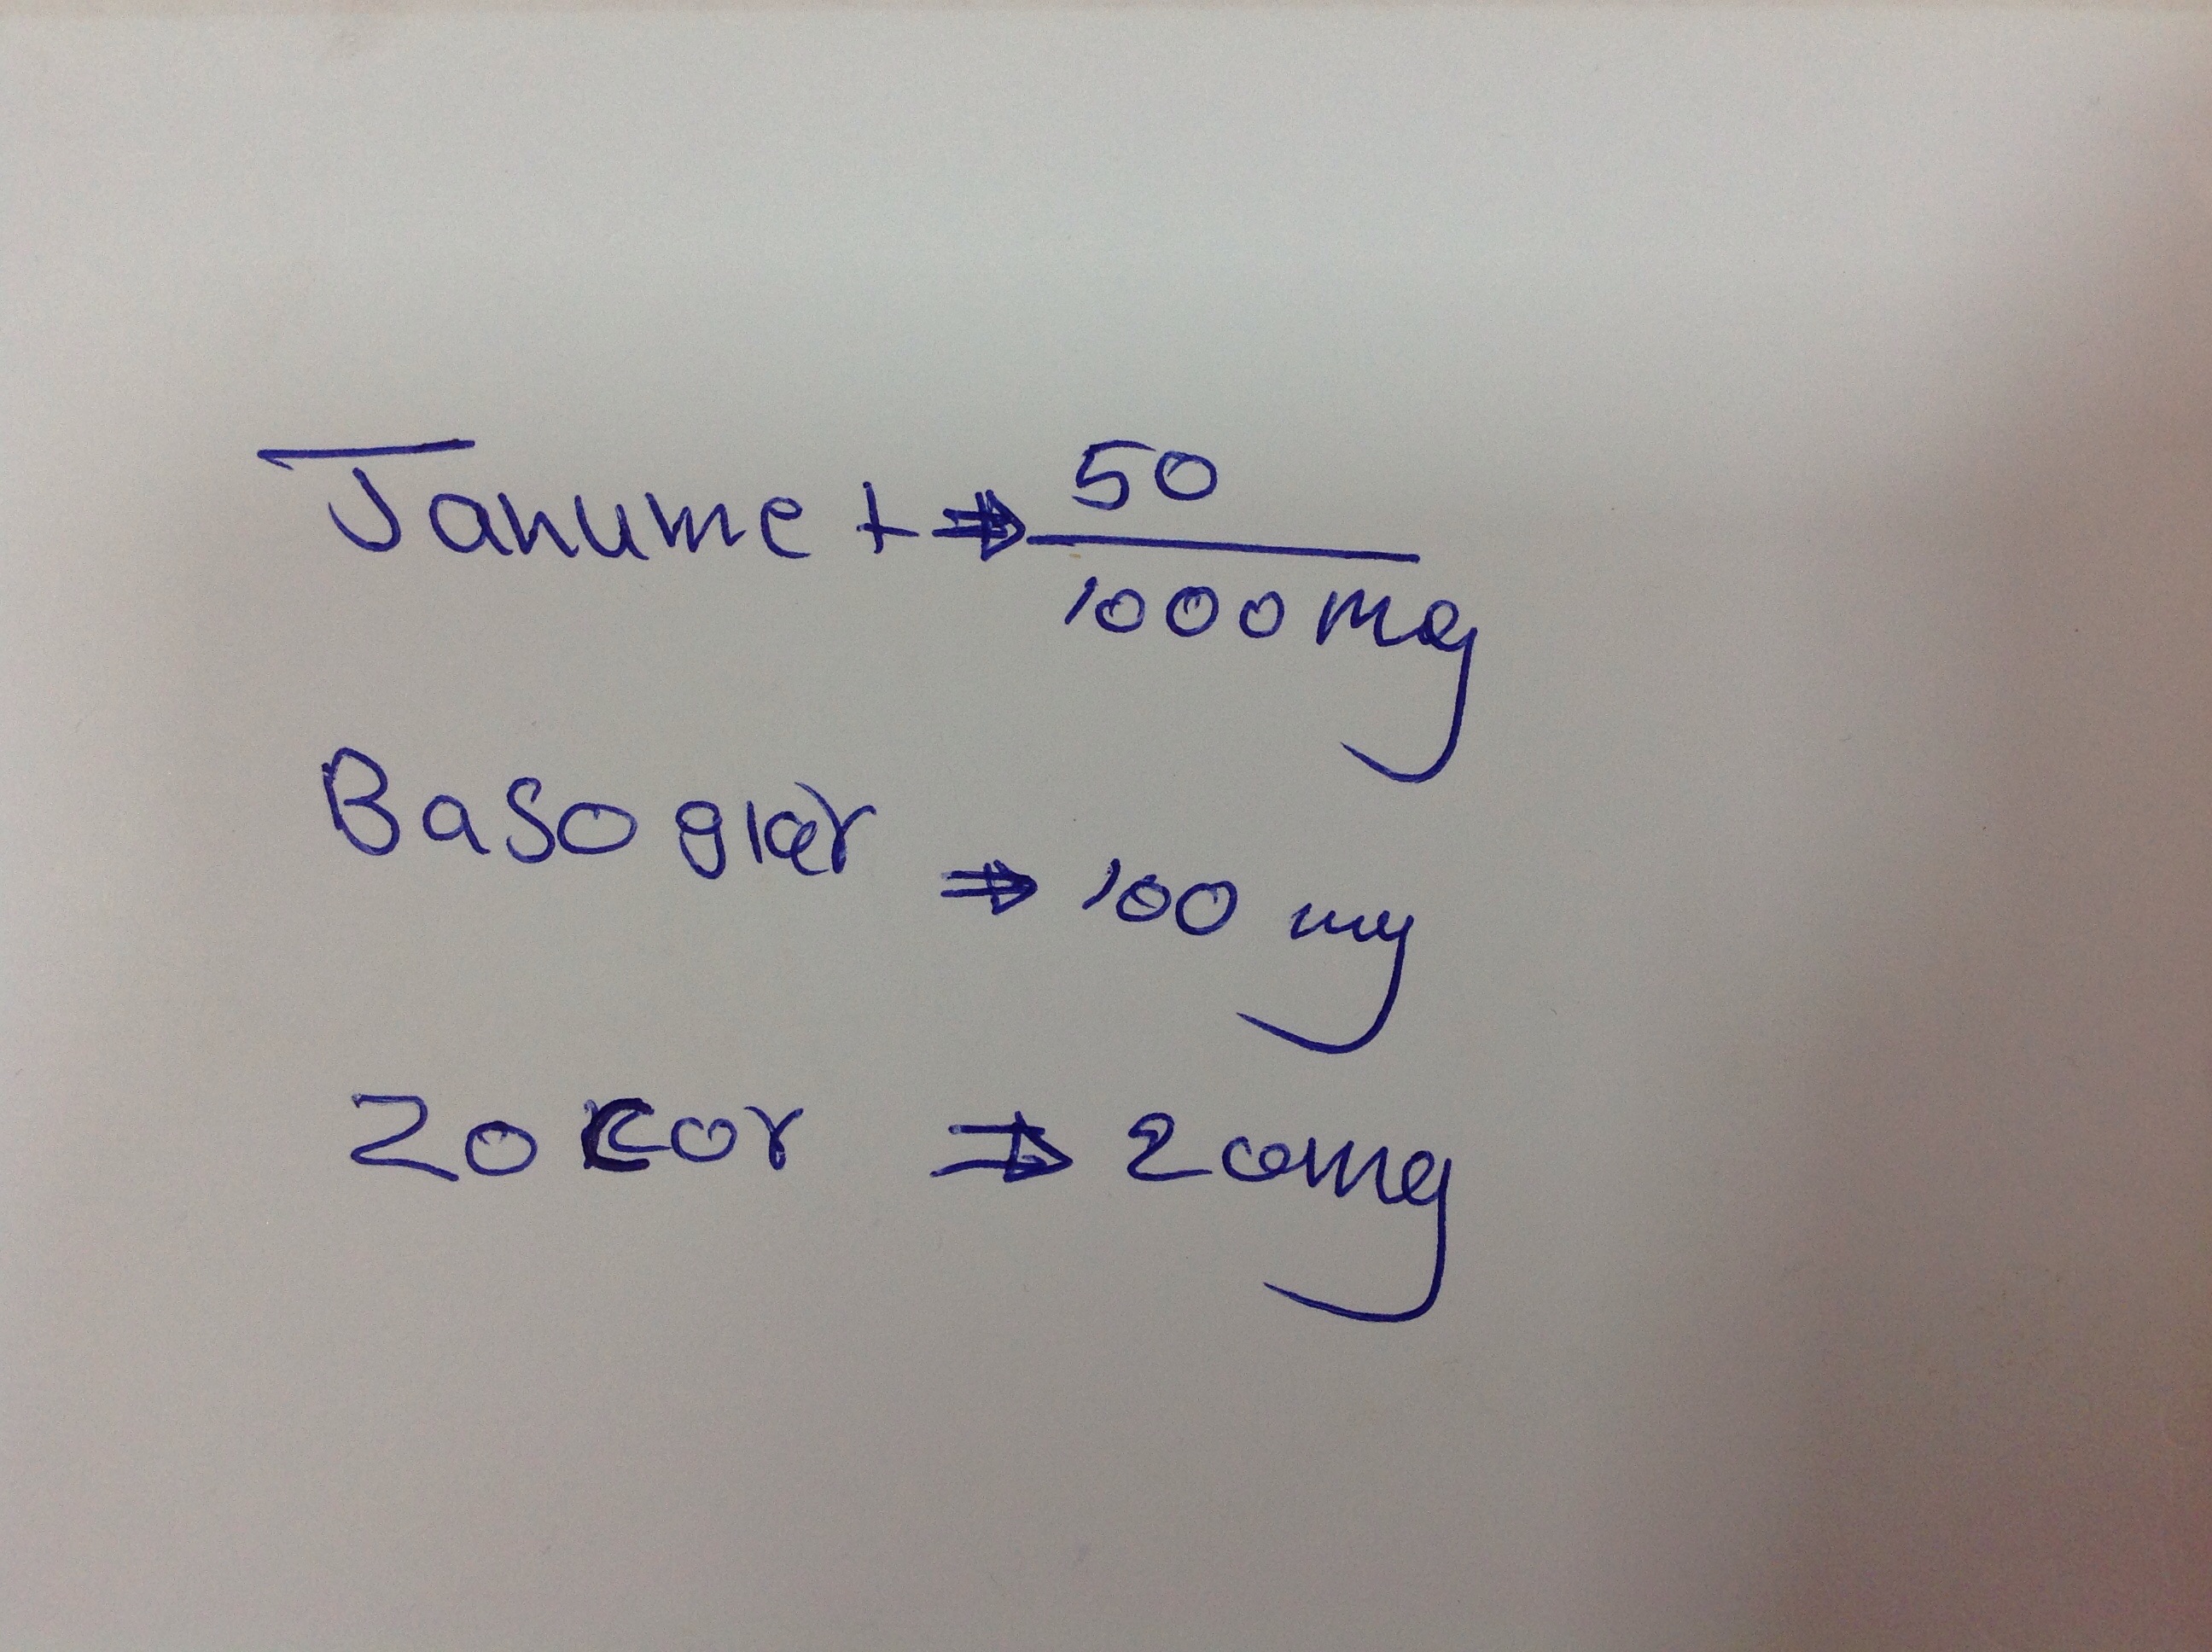 Janumet ⇒ 50
1000 mg
Basoglar ⇒ 100 mg
Zocor ⇒ 20mg